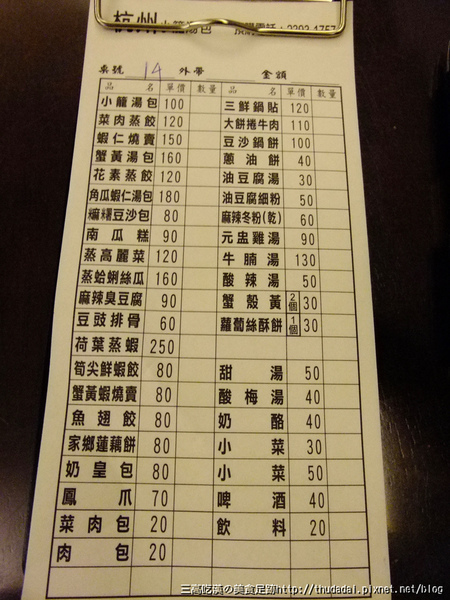 杭州小籠湯包
桌號 14 外帶 金額
品名 單價 數量
小籠湯包 100
菜肉蒸餃 120
蝦仁燒賣 150
蟹黃湯包 160
花素蒸餃 120
角瓜蝦仁湯包 180
豆沙包 80
南瓜糕 90
蒸高麗菜 120
蒸蛤蜊絲瓜 160
麻辣臭豆腐 90
豆豉排骨 60
荷葉蒸蝦 250
筍尖鮮蝦餃 80
蟹黃蝦燒賣 80
魚翅餃 80
家鄉蓮藕餅 80
奶皇包 80
鳳爪 70
菜肉包 20
肉包 20
品名 單價 數量
三鮮鍋貼 120
大餅捲牛肉 110
豆沙鍋餅 100
蔥油餅 40
油豆腐湯 30
油豆腐細粉 50
麻辣冬粉(乾) 60
元盅雞湯 90
牛腩湯 130
酸辣湯 50
蟹殼黃 2個 30
蘿蔔絲酥餅 1個 30
甜湯 50
酸梅湯 40
奶酪 40
小菜 30
小菜 50
啤酒 40
飲料 20
三高吃漢の美食足跡http://thudadai.pixnet.net/blog